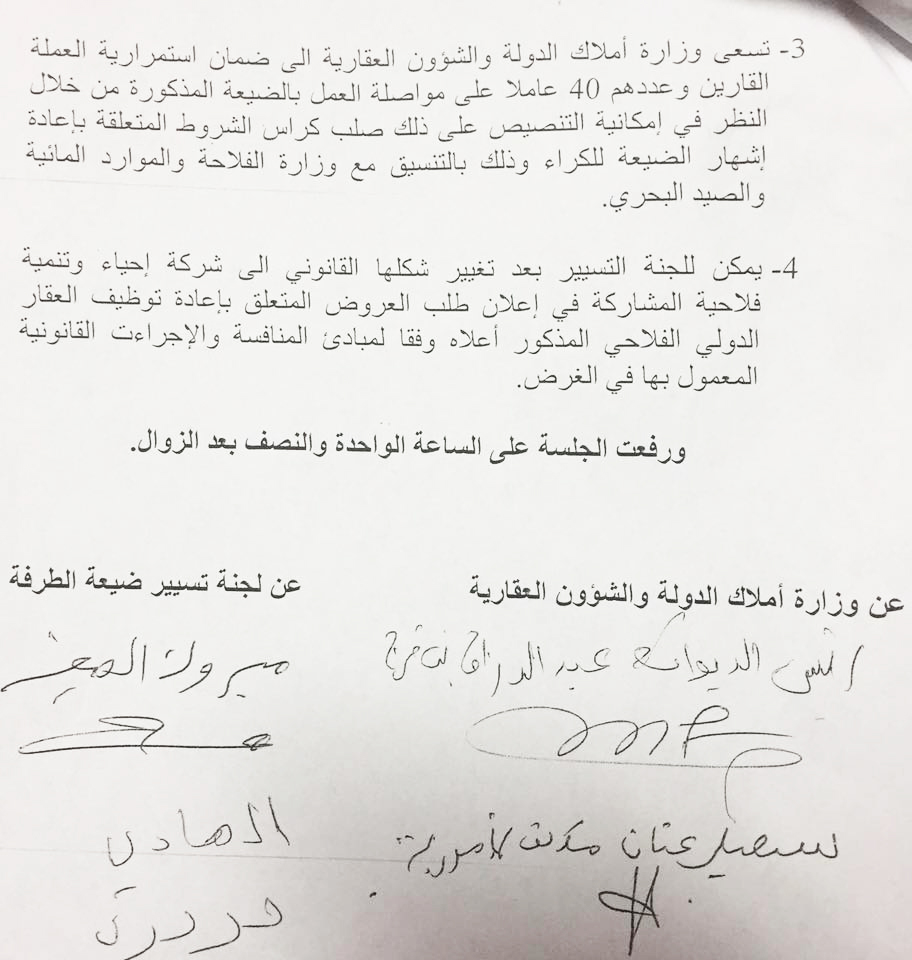 3- تسعى وزارة أملاك الدولة والشؤون العقارية الى ضمان استمرارية العملة
القارين وعددهم 40 عاملا على مواصلة العمل بالضيعة المذكورة من خلال
النظر في إمكانية التنصيص على ذلك صلب كراس الشروط المتعلقة بإعادة
إشهار الضيعة للكراء وذلك بالتنسيق مع وزارة الفلاحة والموارد المائية
والصيد البحري.
4- يمكن للجنة التسيير بعد تغيير شكلها القانوني الى شركة إحياء وتنمية
فلاحية المشاركة في إعلان طلب العروض المتعلق بإعادة توظيف العقار
الدولي الفلاحي المذكور أعلاه وفقا لمبادئ المنافسة والإجراءت القانونية
المعمول بها في الغرض.
ورفعت الجلسة على الساعة الواحدة والنصف بعد الزوال.
عن وزارة أملاك الدولة والشؤون العقارية
عن لجنة تسيير ضيعة الطرفة
الديوان عبد الرزاق بن فرج
مبروك الصغير
سهيل عثمان مكلف بمأمورية
الهادي